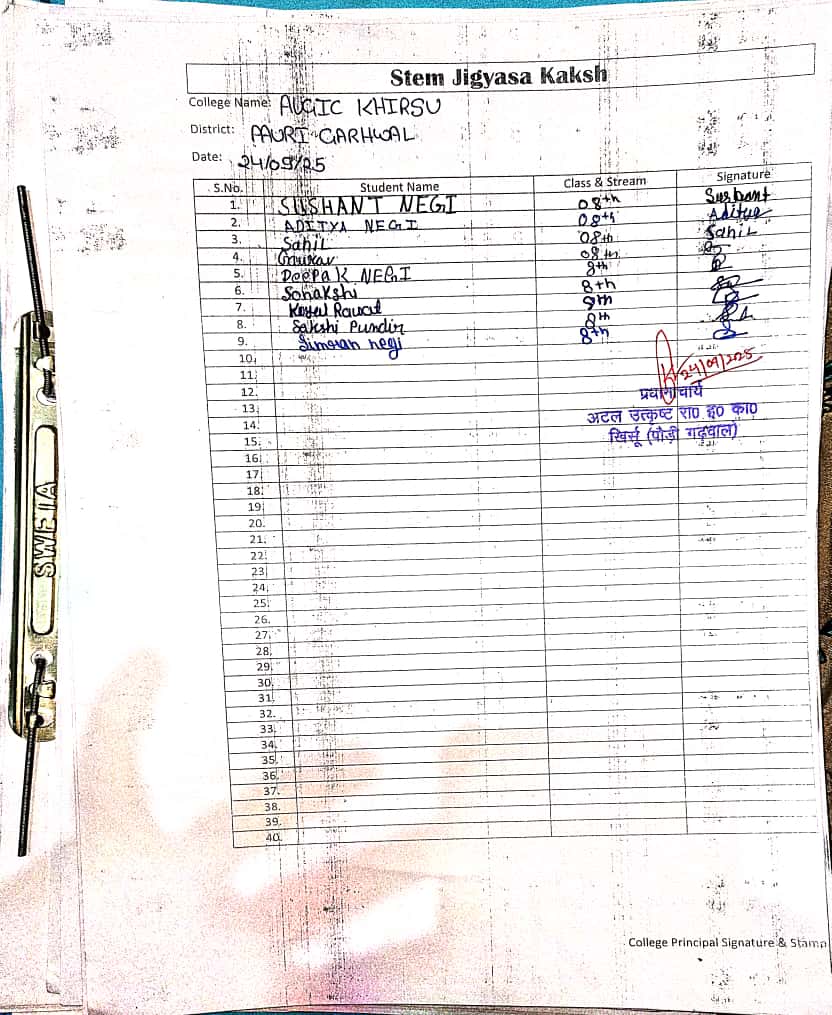 Stem Jigyasa Kaksh
College Name: AUGIC KHIRSU
District: PAURI GARHWAL
Date: 24/09/25
S.No. Student Name Class & Stream Signature
1. SUSHANT NEGI 08th Sushant
2. ADITYA NEGI 08th Aditya
3. Sahil 08th Sahil
4. 08th
5. Deepak NEGI 8th
6. Sonakshi 8th
7. Rawat 8th
8. Sakshi Pundir 8th
9. Simran negi 8th
10.
11. 24/09/2025
12. प्रधानाचार्य
13. अटल उत्कृष्ट रा0 इ0 का0
14. खिर्सू (पौड़ी गढ़वाल)
15.
16.
17.
18.
19.
20.
21.
22.
23.
24.
25.
26.
27.
28.
29.
30.
31.
32.
33.
34.
35.
36.
37.
38.
39.
40.
College Principal Signature & Stamp
SWETA